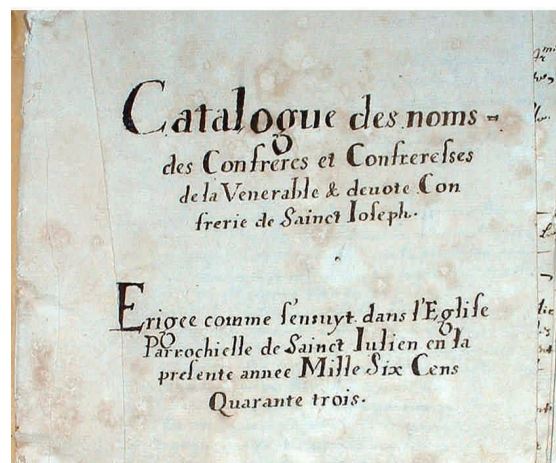 Catalogue des noms =
des Confreres et Confreresses
de la Venerable & deuote Con
frerie de Sainct Ioseph.
Erigee comme s'ensuyt dans l'Eglise
Parrochielle de Sainct Iulien en la
presente annee Mille Six Cens
Quarante trois.